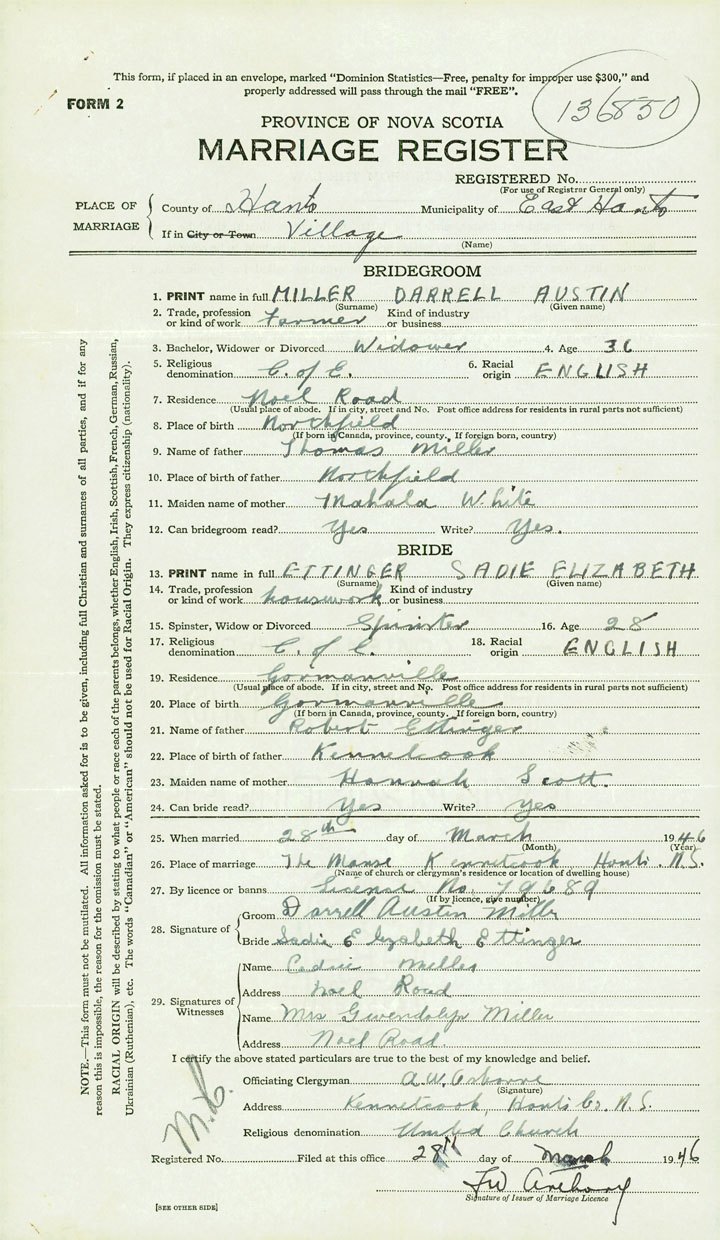 This form, if placed in an envelope, marked "Dominion Statistics—Free, penalty for improper use $300," and
properly addressed will pass through the mail "FREE".
FORM 2
136850
PROVINCE OF NOVA SCOTIA
MARRIAGE REGISTER
REGISTERED No.
(For use of Registrar General only)
PLACE OF MARRIAGE
County of Hants Municipality of East Hants
If in City or Town Village
(Name)
BRIDEGROOM
1. PRINT name in full MILLER DARRELL AUSTIN
(Surname) (Given name)
2. Trade, profession or kind of work Farmer Kind of industry or business
3. Bachelor, Widower or Divorced Widower 4. Age 36
5. Religious denomination C. of E. 6. Racial origin ENGLISH
7. Residence Noel Road
(Usual place of abode. If in city, street and No. Post office address for residents in rural parts not sufficient)
8. Place of birth Northfield
(If born in Canada, province, county. If foreign born, country)
9. Name of father Thomas Miller
10. Place of birth of father Northfield
11. Maiden name of mother Mahala White
12. Can bridegroom read? Yes Write? Yes.
BRIDE
13. PRINT name in full ETTINGER SADIE ELIZABETH
(Surname) (Given name)
14. Trade, profession or kind of work housework Kind of industry or business
15. Spinster, Widow or Divorced Spinster 16. Age 28
17. Religious denomination C. of E. 18. Racial origin ENGLISH
19. Residence Gormanville
(Usual place of abode. If in city, street and No. Post office address for residents in rural parts not sufficient)
20. Place of birth Gormanville
(If born in Canada, province, county. If foreign born, country)
21. Name of father Robert Ettinger
22. Place of birth of father Kennetcook
23. Maiden name of mother Hannah Scott.
24. Can bride read? Yes Write? Yes
25. When married 28th day of March 1946
(Month) (Year)
26. Place of marriage The Manse Kennetcook Hants. N.S.
(Name of church or clergyman's residence or location of dwelling house)
27. By licence or banns License No. 79689
(If by licence, give number)
28. Signature of
Groom Darrell Austin Miller
Bride Sadie Elizabeth Ettinger
29. Signatures of Witnesses
Name Miller
Address Noel Road
Name Mrs Gwendolyn Miller
Address Noel Road.
I certify the above stated particulars are true to the best of my knowledge and belief.
Officiating Clergyman A.W. Osborne
(Signature)
Address Kennetcook, Hants Co. N.S.
Religious denomination United Church
Registered No. Filed at this office 28th day of March 1946
Signature of Issuer of Marriage Licence
[SEE OTHER SIDE]
NOTE.—This form must not be mutilated. All information asked for is to be given, including full Christian and surnames of all parties, and if for any
reason this is impossible, the reason for the omission must be stated.
RACIAL ORIGIN will be described by stating to what people or race each of the parents belongs, whether English, Irish, Scottish, French, German, Russian,
Ukrainian (Ruthenian), etc. The words "Canadian" or "American" should not be used for Racial Origin. They express citizenship (nationality).